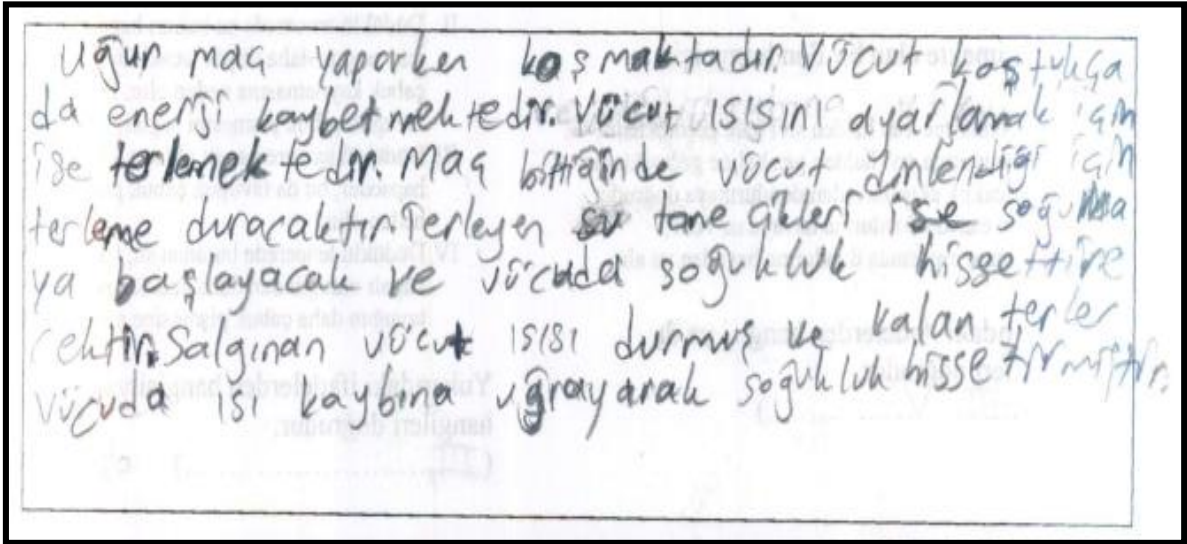 Uğur maç yaparken koşmaktadır. Vücut koştukça
da enerji kaybetmektedir. Vücut ısısını ayarlamak için
ise terlemektedir. Maç bittiğinde vücut dinlendiği için
terleme duracaktır. Terleyen su tanecikleri ise soğuma
ya başlayacak ve vücuda soğukluk hissettire
cektir. Salgınan vücut ısısı durmuş ve kalan terler
vücuda ısı kaybına uğrayarak soğukluk hissetirmiştir.